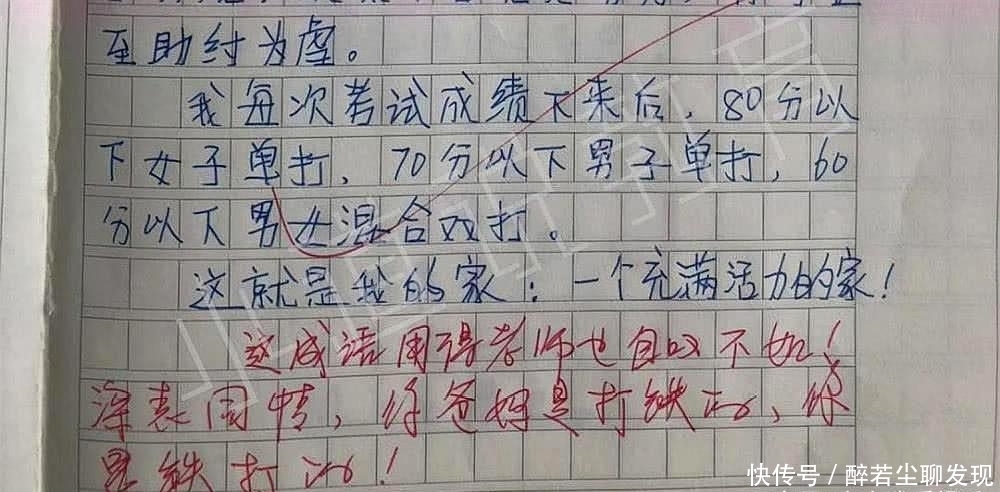 至助纣为虐。
我每次考试成绩下来后，80分以
下女子单打，70分以下男子单打，60
分以下男女混合双打。
这就是我的家：一个充满活力的家！
这成语用得老师也自叹不如！
深表同情，你爸妈是打铁的，你
是铁打的！
快传号／醉若尘聊发现